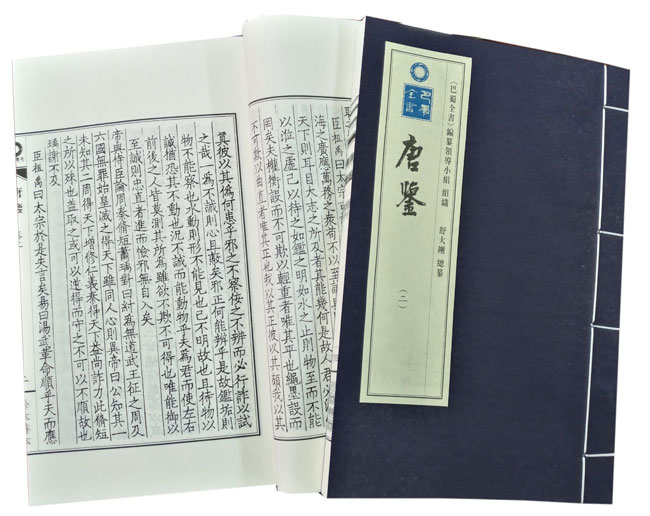 《巴蜀全書》編纂領導小組 組織 舒大剛 總纂
巴蜀
全書
唐鑒
(二)
臣祖禹曰太宗
海之廣應萬務之衆苟不以至誠
天下則耳目大志之所及者其能幾何是故人君必
以涖之虛己以待之如鑑之明如水之止則物至而不能
罔矣夫權衡設而不可欺以輕重者唯其平也繩墨設而
不可欺以曲直者唯其正也我以其正彼以其頗我以
其彼以其偽何患乎邪之不察佞之不辨而必行詐以試
之哉一爲不誠則心且蔽矣邪正何能辨乎是故鑑垢則
物不能察也水動則形不能見也己不明故也且待物以
誠猶恐其不動也況不誠而能動物乎夫爲君而使左右
前後之人皆莫測其所爲雖欲不欺不可得也唯能御以
至誠則忠直者進而憸邪無自入矣
帝與侍臣論周秦脩短蕭瑀對曰紂爲無道武王征之周及
六國無罪始皇滅之得天下雖同人心則異帝曰公知其一
未知其二周得天下增修仁義秦得天下益尚詐力此脩短
之所以殊也蓋取之或可以逆得而守之不可以不順故也
瑀謝不及
臣祖禹曰太宗於是失言矣易曰湯武革命順乎天而應